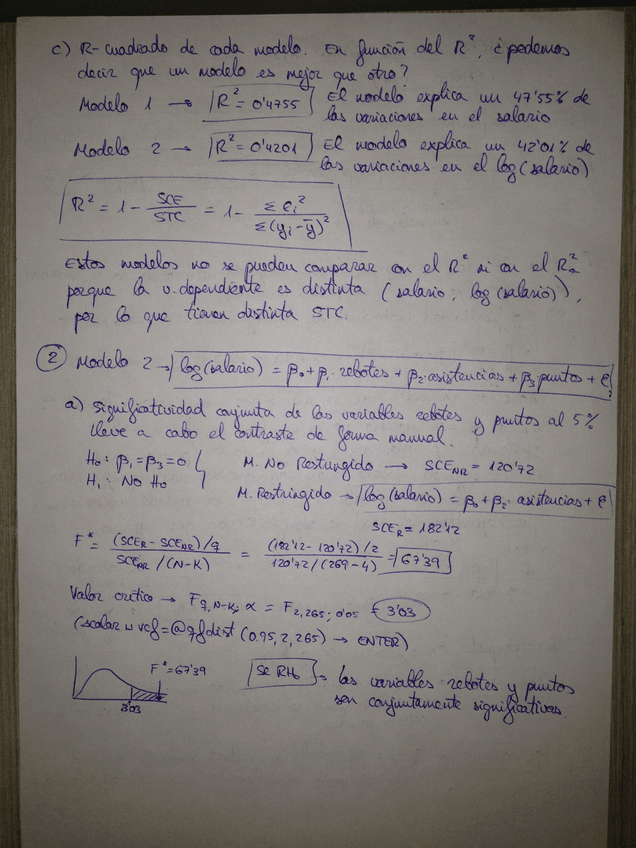 c) R-cuadrado de cada modelo. En función del R², ¿podemos
decir que un modelo es mejor que otro?
Modelo 1 → R² = 0'4755 El modelo explica un 47'55% de
las variaciones en el salario
Modelo 2 → R² = 0'4201 El modelo explica un 42'01% de
las variaciones en el log(salario)
R² = 1 - SCE/STC = 1 - Σei²/Σ(yi-ȳ)²
Estos modelos no se pueden comparar con el R² ni con el R²a
porque la v.dependiente es distinta (salario, log(salario)),
por lo que tienen distinta STC.
2 Modelo 2 → log(salario) = β0 + β1·rebotes + β2·asistencias + β3·puntos + e
a) Significatividad conjunta de las variables rebotes y puntos al 5%
lleve a cabo el contraste de forma manual.
H0: β1 = β3 = 0 M. No Restringido → SCENR = 120'72
H1: No H0
M. Restringido → log(salario) = β0 + β2·asistencias + e
SCER = 182'12
F* = (SCER - SCENR)/q / SCENR/(N-K) = (182'12 - 120'72)/2 / 120'72/(269-4) = 67'39
Valor crítico → Fq, N-K; α = F2,265; 0'05 = 3'03
(scalar vcf=@qfdist(0.95,2,265) → ENTER)
F* = 67'39 Se RH0 = las variables rebotes y puntos
3'03 son conjuntamente significativas.